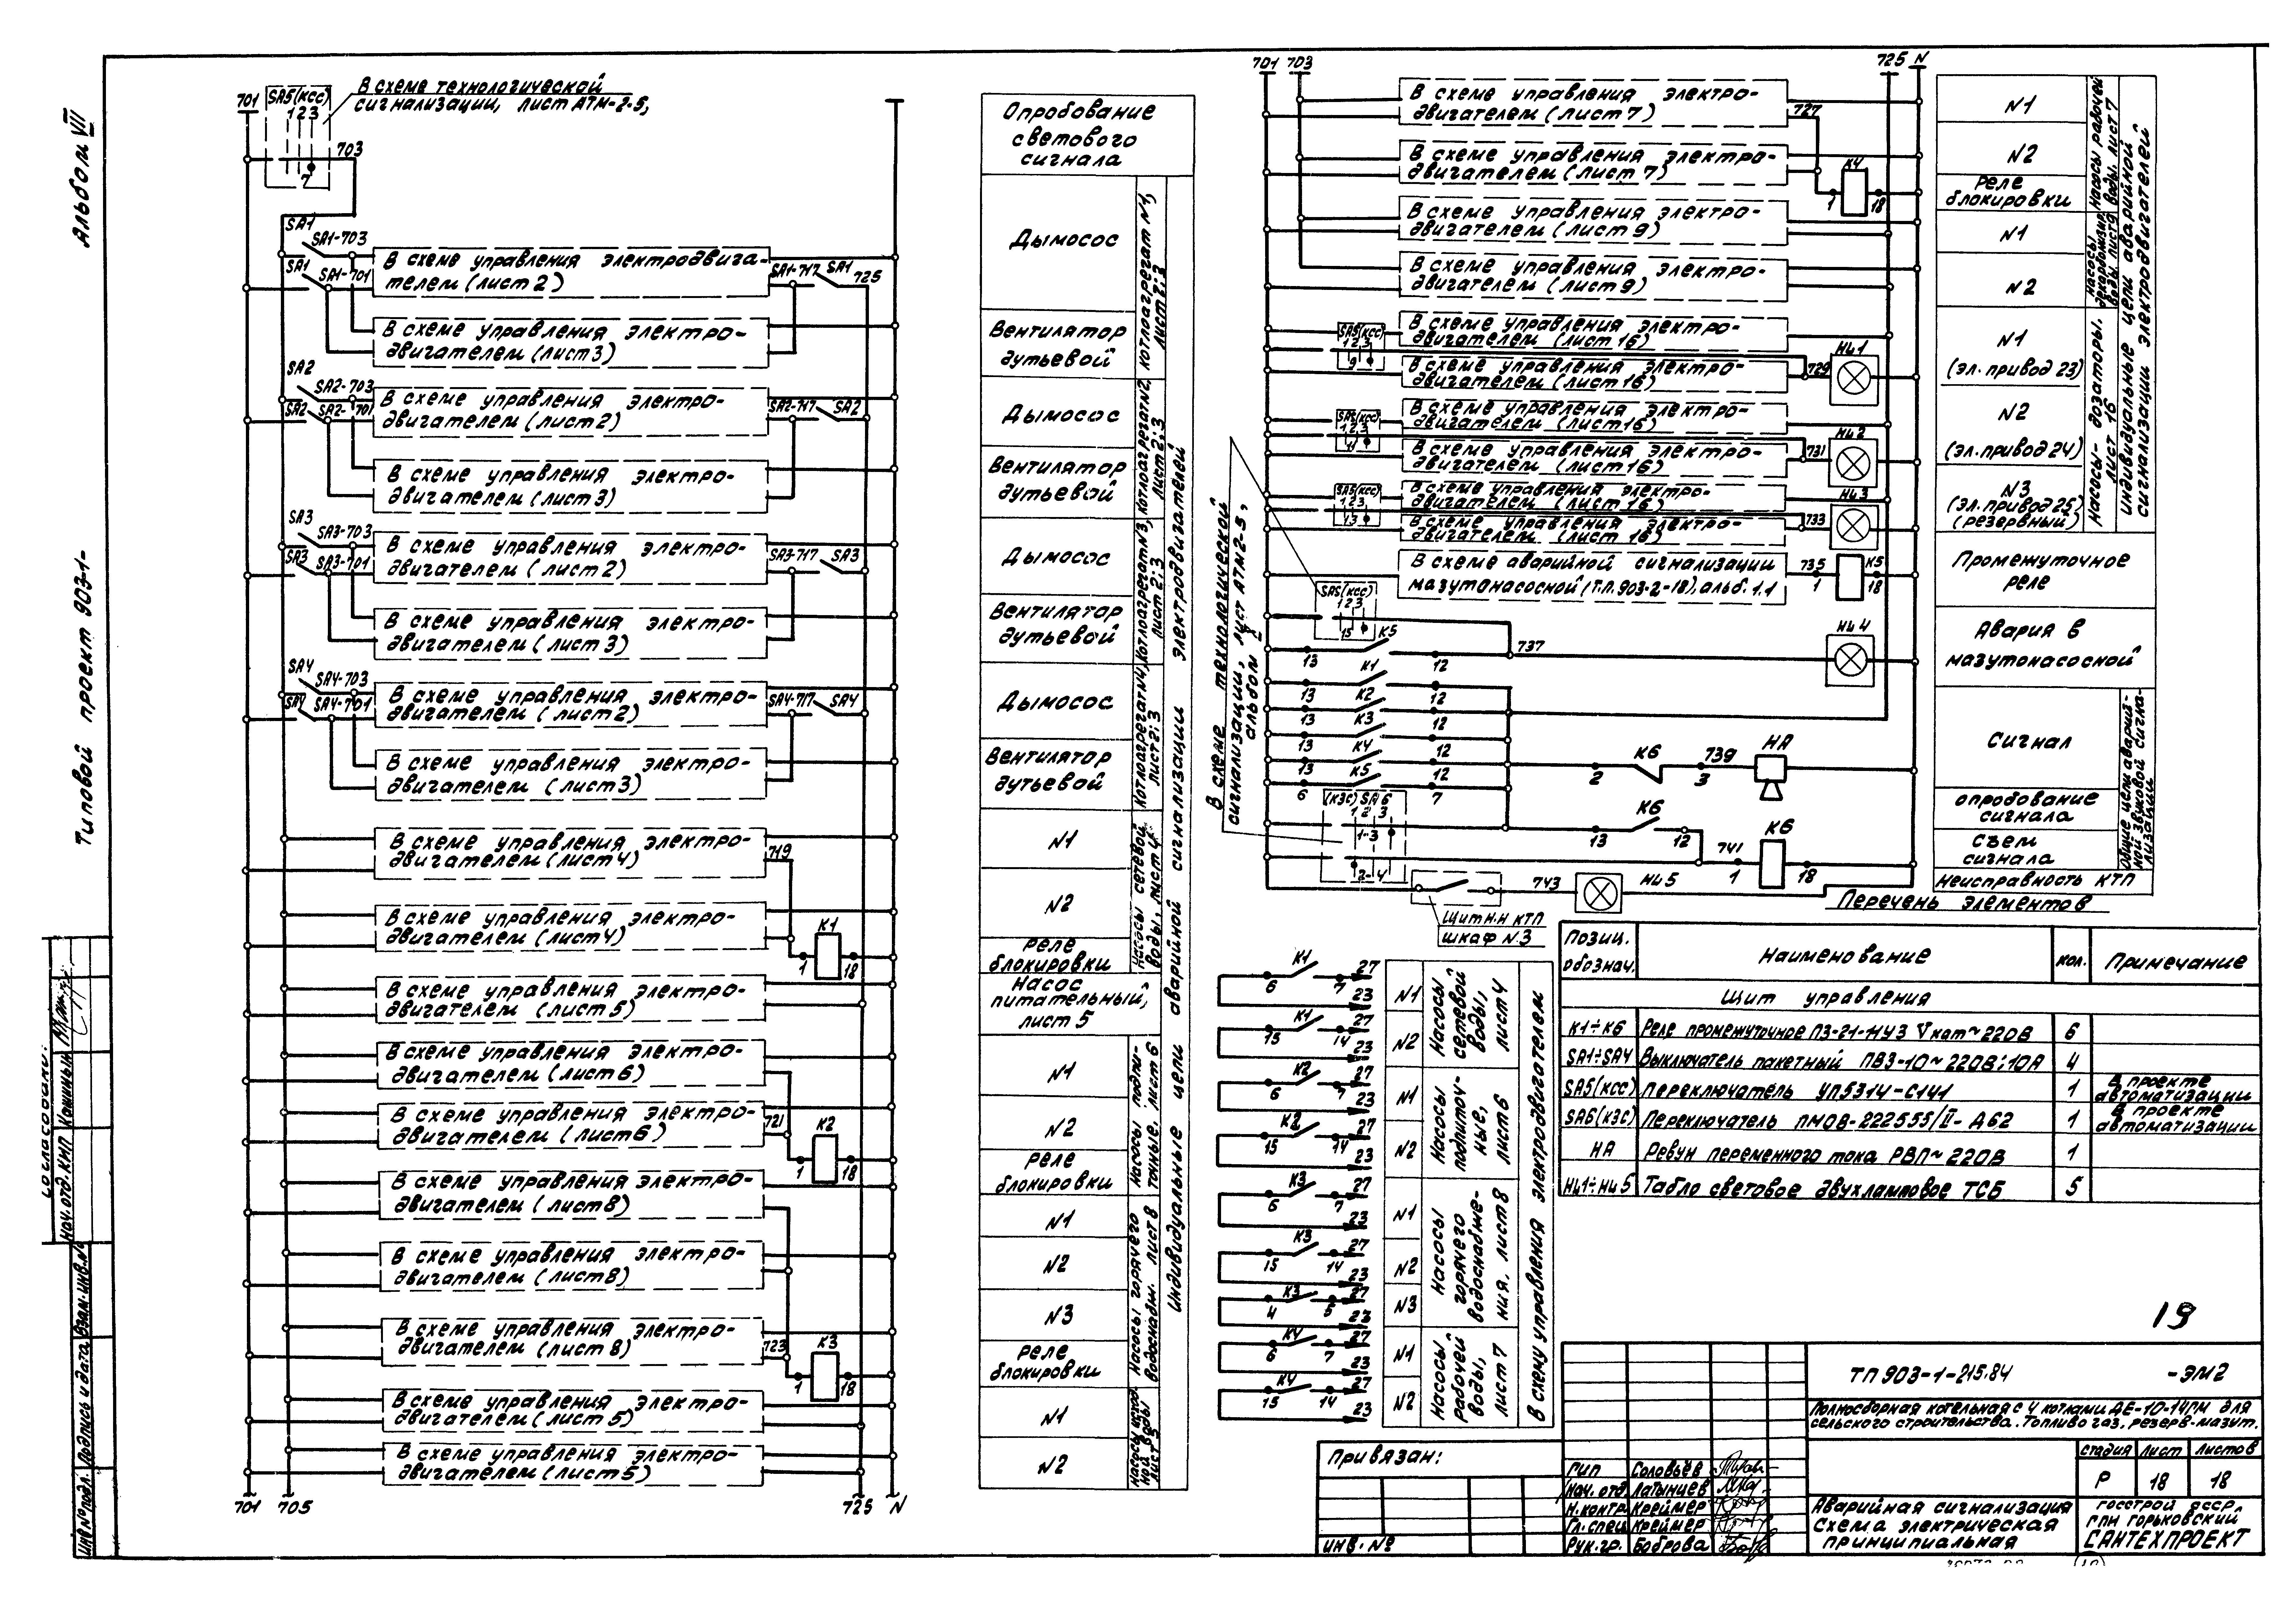 Альбом VII
Типовой проект 903-1-
701
SA5(КСС)
1 2 3
7
703
В схеме технологической
сигнализации, лист АТМ-2-5,
SA1
SA1-703
SA1
SA1-701
В схеме управления электродвига-
телем (лист 2)
SA1-717
SA1
725
В схеме управления электро-
двигателем (лист 3)
SA2
SA2-703
SA2
SA2-701
В схеме управления электро-
двигателем (лист 2)
SA2-717
SA2
В схеме управления электро-
двигателем (лист 3)
SA3
SA3-703
SA3
SA3-701
В схеме управления электро-
двигателем (лист 2)
SA3-717
SA3
В схеме управления электро-
двигателем (лист 3)
SA4
SA4-703
SA4
SA4-701
В схеме управления электро-
двигателем (лист 2)
SA4-717
SA4
В схеме управления электро-
двигателем (лист 3)
В схеме управления электро-
двигателем (лист 4)
719
В схеме управления электро-
двигателем (лист 4)
К1
1 18
В схеме управления электро-
двигателем (лист 5)
В схеме управления электро-
двигателем (лист 6)
В схеме управления электро-
двигателем (лист 6)
721
К2
1 18
В схеме управления электро-
двигателем (лист 8)
В схеме управления электро-
двигателем (лист 8)
В схеме управления электро-
двигателем (лист 8)
723
К3
1 18
В схеме управления электро-
двигателем (лист 5)
В схеме управления электро-
двигателем (лист 5)
701 705 725 N
Опробование
светового
сигнала
Дымосос
Вентилятор
дутьевой
Котлоагрегат N1,
лист 2; 3
Дымосос
Вентилятор
дутьевой
Котлоагрегат N2,
лист 2; 3
Дымосос
Вентилятор
дутьевой
Котлоагрегат N3,
лист 2; 3
Дымосос
Вентилятор
дутьевой
Котлоагрегат N4,
лист 2; 3
N1
N2
Реле
блокировки
Насосы сетевой
воды, лист 4
Насос
питательный,
лист 5
N1
N2
Реле
блокировки
Насосы подпи-
точные, лист 6
N1
N2
N3
Реле
блокировки
Насосы горячего
водоснабж. лист 8
N1
N2
лист 5
Индивидуальные цепи аварийной сигнализации электродвигателей
701 703 725 N
В схеме управления электро-
двигателем (лист 7)
727
В схеме управления электро-
двигателем (лист 7)
К4
1 18
В схеме управления электро-
двигателем (лист 9)
В схеме управления электро-
двигателем (лист 9)
SA5(КСС)
1 2 3
9
В схеме управления электро-
двигателем (лист 16)
В схеме управления электро-
двигателем (лист 16)
729
HL1
SA5(КСС)
1 2 3
11
В схеме управления электро-
двигателем (лист 16)
В схеме управления электро-
двигателем (лист 16)
731
HL2
SA5(КСС)
1 2 3
13
В схеме управления электро-
двигателем (лист 16)
В схеме управления электро-
двигателем (лист 16)
733
HL3
В схеме аварийной сигнализации
мазутонасосной (т.п. 903-2-18), альб. 1.1
735
К5
1 18
SA5(КСС)
1 2 3
15
К5
13 12
737
HL4
К1
13 12
К2
13 12
К3
13 12
К4
13 12
К5
6 7
2
К6
739
3
НА
(КЗС) SA6
1 2 3
1-3
2-4
К6
13 12
741
К6
1 18
743
HL5
Щит Н.Н КТП
шкаф N3
В схеме технологической
сигнализации, лист АТМ2-5,
альбом
N1
N2
Реле
блокировки
Насосы рабочей
воды, лист 7
N1
N2
Насосы
декарбонизир.
воды, лист 9
N1
(эл. привод 23)
N2
(эл. привод 24)
N3
(эл. привод 25)
(резервный)
Насосы-дозаторы,
лист 16
Индивидуальные цепи аварийной
сигнализации электродвигателей
Промежуточное
реле
Авария в
мазутонасосной
Сигнал
Опробование
сигнала
Съем
сигнала
Общие цепи аварий-
ной звуковой сигна-
лизации
Неисправность КТП
К1
6 7 27
23
К1
15 14 27
23
К2
6 7 27
23
К2
15 14 27
23
К3
6 7 27
23
К3
15 14 27
23
К3
4 5 27
23
К4
6 7 27
23
К4
15 14 27
23
N1
N2
Насосы
сетевой
воды,
лист 4
N1
N2
Насосы
подпиточ-
ные,
лист 6
N1
N2
N3
Насосы
горячего
водоснабже-
ния, лист 8
N1
N2
Насосы
рабочей
воды,
лист 7
В схему управления электродвигателем
Перечень элементов
Позиц. обознач. Наименование кол. Примечание
Щит управления
К1÷К6 Реле промежуточное ПЭ-21-НУ3 V кат ~ 220В 6
SA1÷SA4 Выключатель пакетный ПВ3-10 ~ 220В; 10А 4
SA5(КСС) Переключатель УП5314-С141 1 В проекте автоматизации
SA6(КЗС) Переключатель ПМОВ-222555/II-Д62 1 В проекте автоматизации
НА Ревун переменного тока РВП ~ 220В 1
HL1÷HL5 Табло световое двухламповое ТСБ 5
19
ТП 903-1-215.84 -ЭМ2
Полносборная котельная с 4 котлами ДЕ-10-14ГМ для
сельского строительства. Топливо газ, резерв-мазут.
Стадия Лист Листов
Р 18 18
Аварийная сигнализация
Схема электрическая
принципиальная
Госстрой РСФСР
ГПИ Горьковский
САНТЕХПРОЕКТ
Привязан:
Инв. №
ГИП Соловьев
Нач. отд. Латынцев
Н.контр. Креймер
Гл. спец. Креймер
Рук. гр. Боброва
Согласовано:
Нач. отд. КИП Кашиный
Инв № подл. Подпись и дата Взам. инв. №